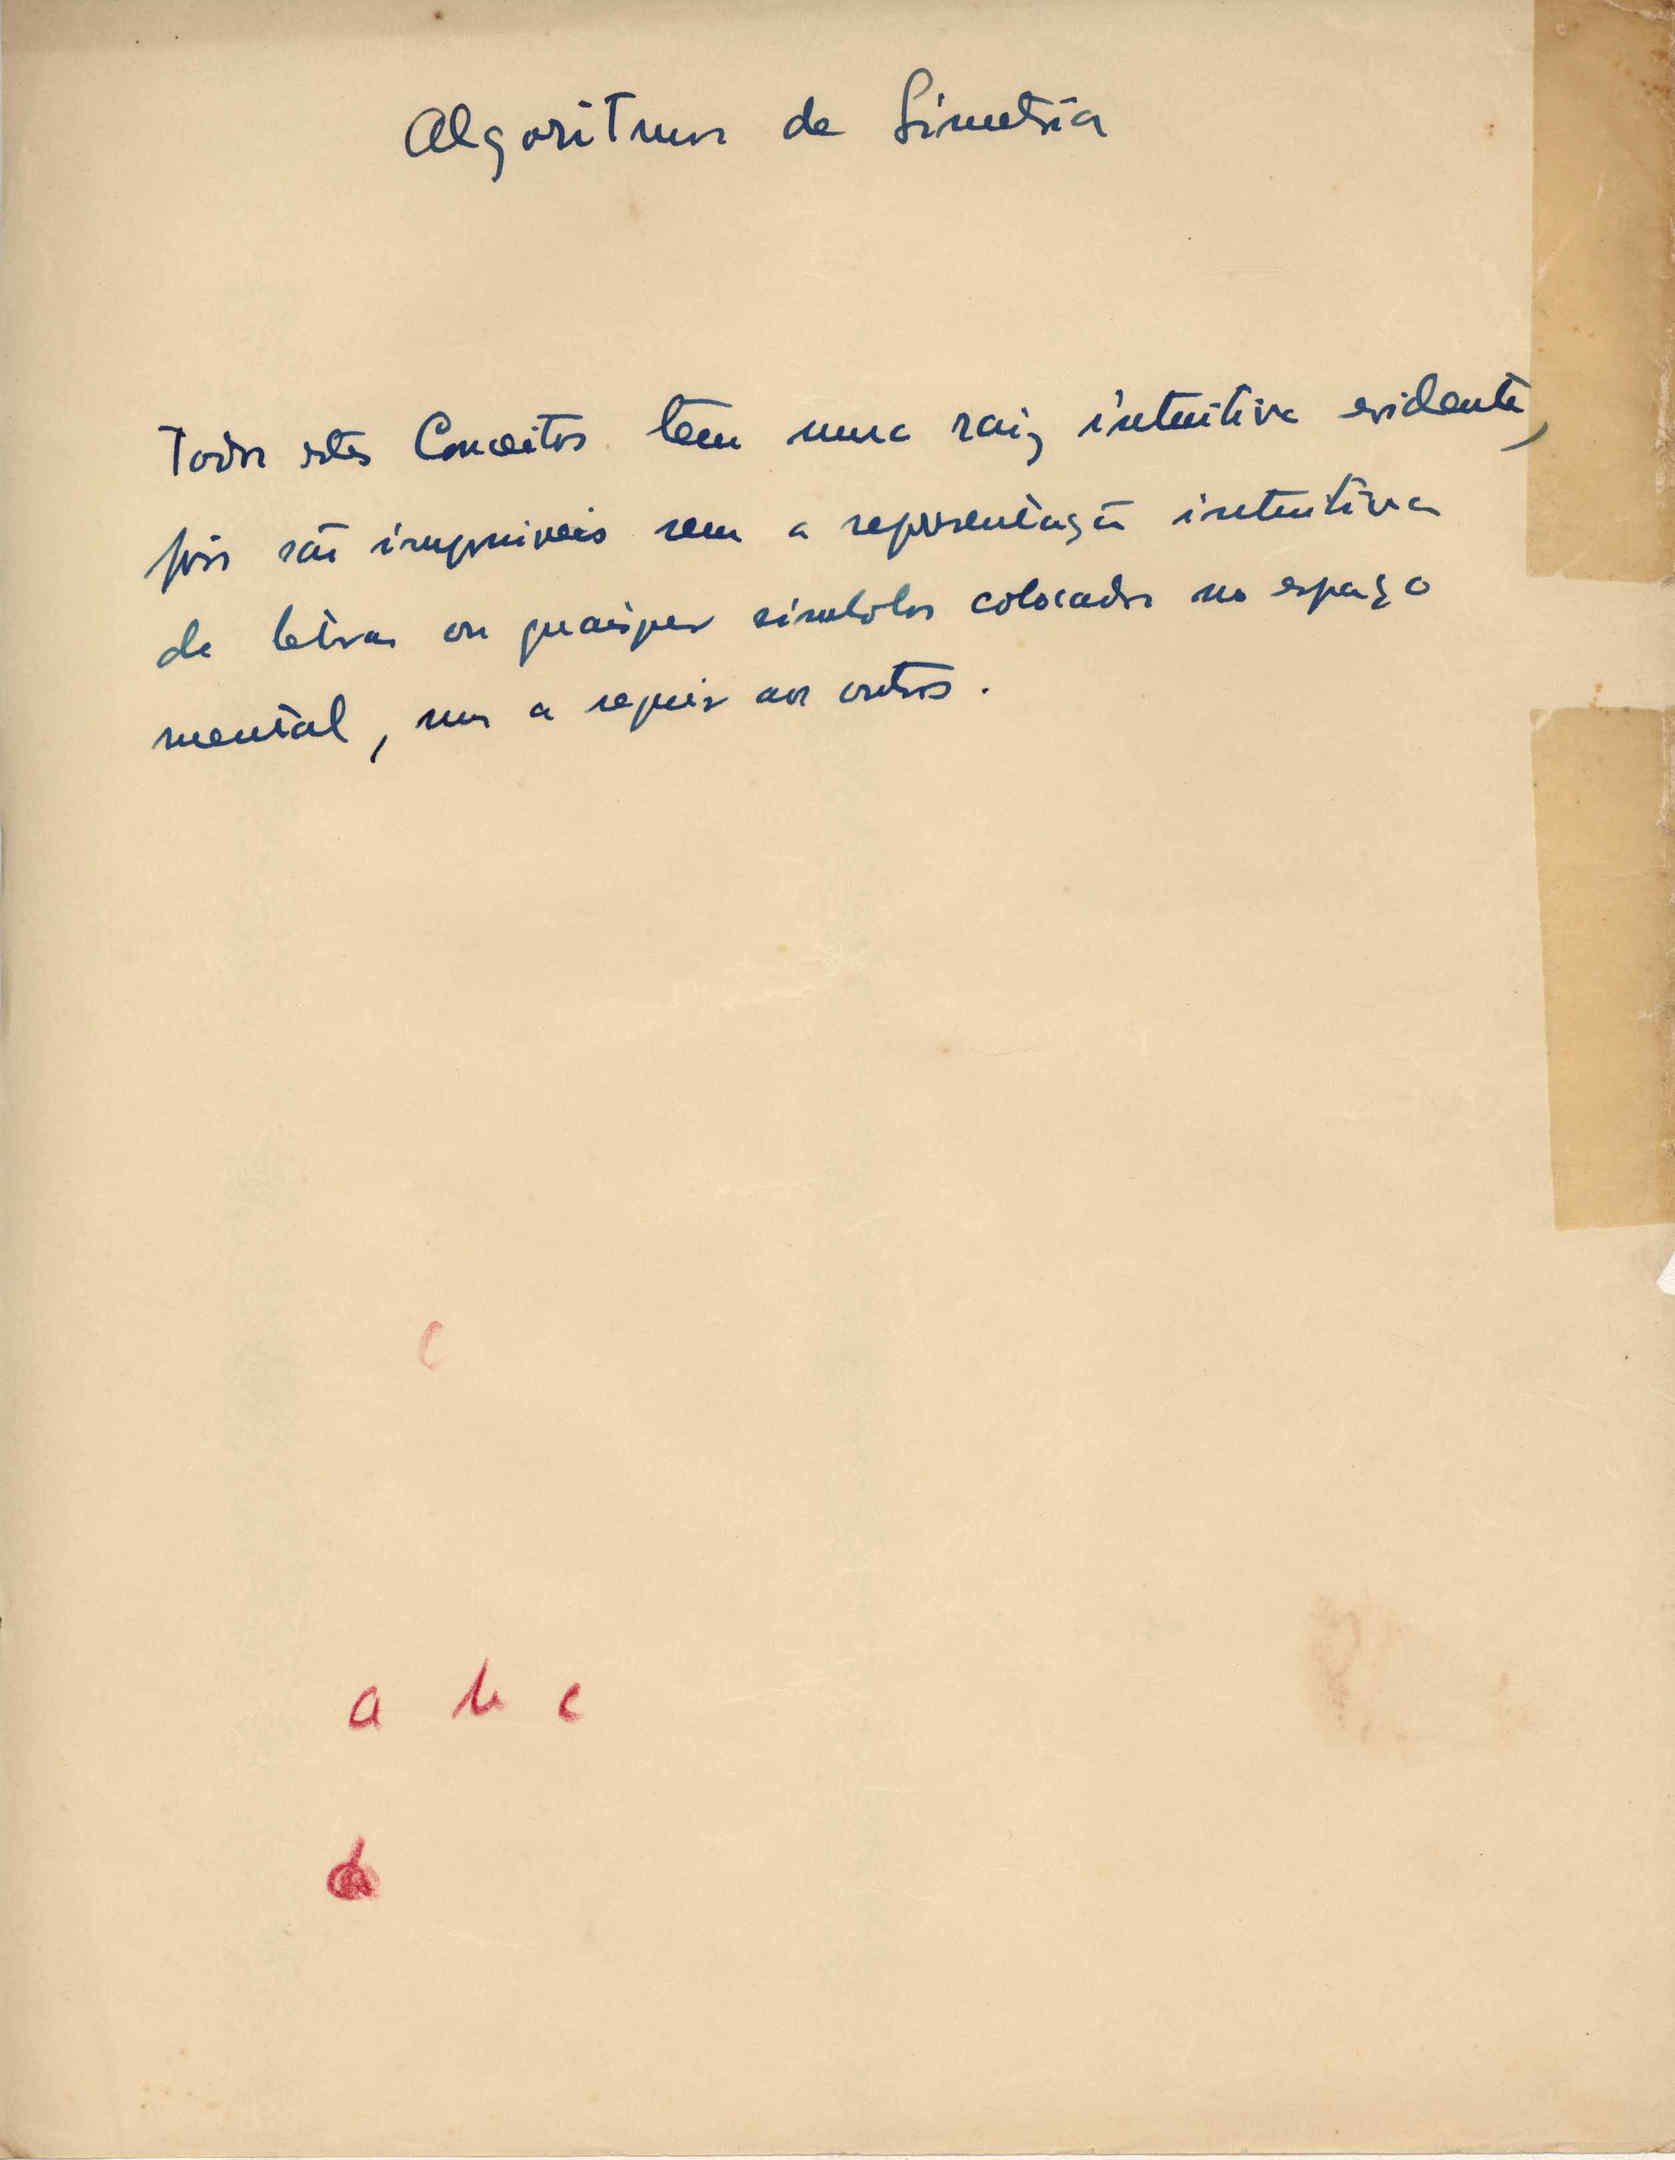 Algoritmos de Simetria
Todos estes Conceitos tem uma raiz intuitiva evidente,
pois são impossiveis sem a representação intuitiva
de letras ou quaisquer simbolos colocados no espaço
mental, uns a seguir aos outros.
c
a b c